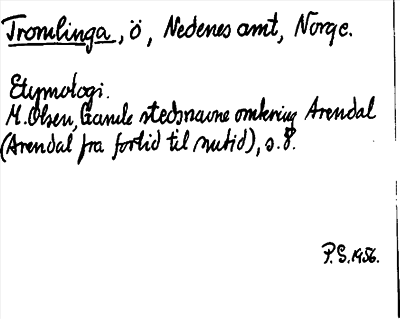 Tromlinga, ö, Nedenes amt, Norge.
Etymologi.
M. Olsen, Gamle stedsnavne omkring Arendal
(Arendal fra fortid til nutid), s. 8.
P.S. 1956.